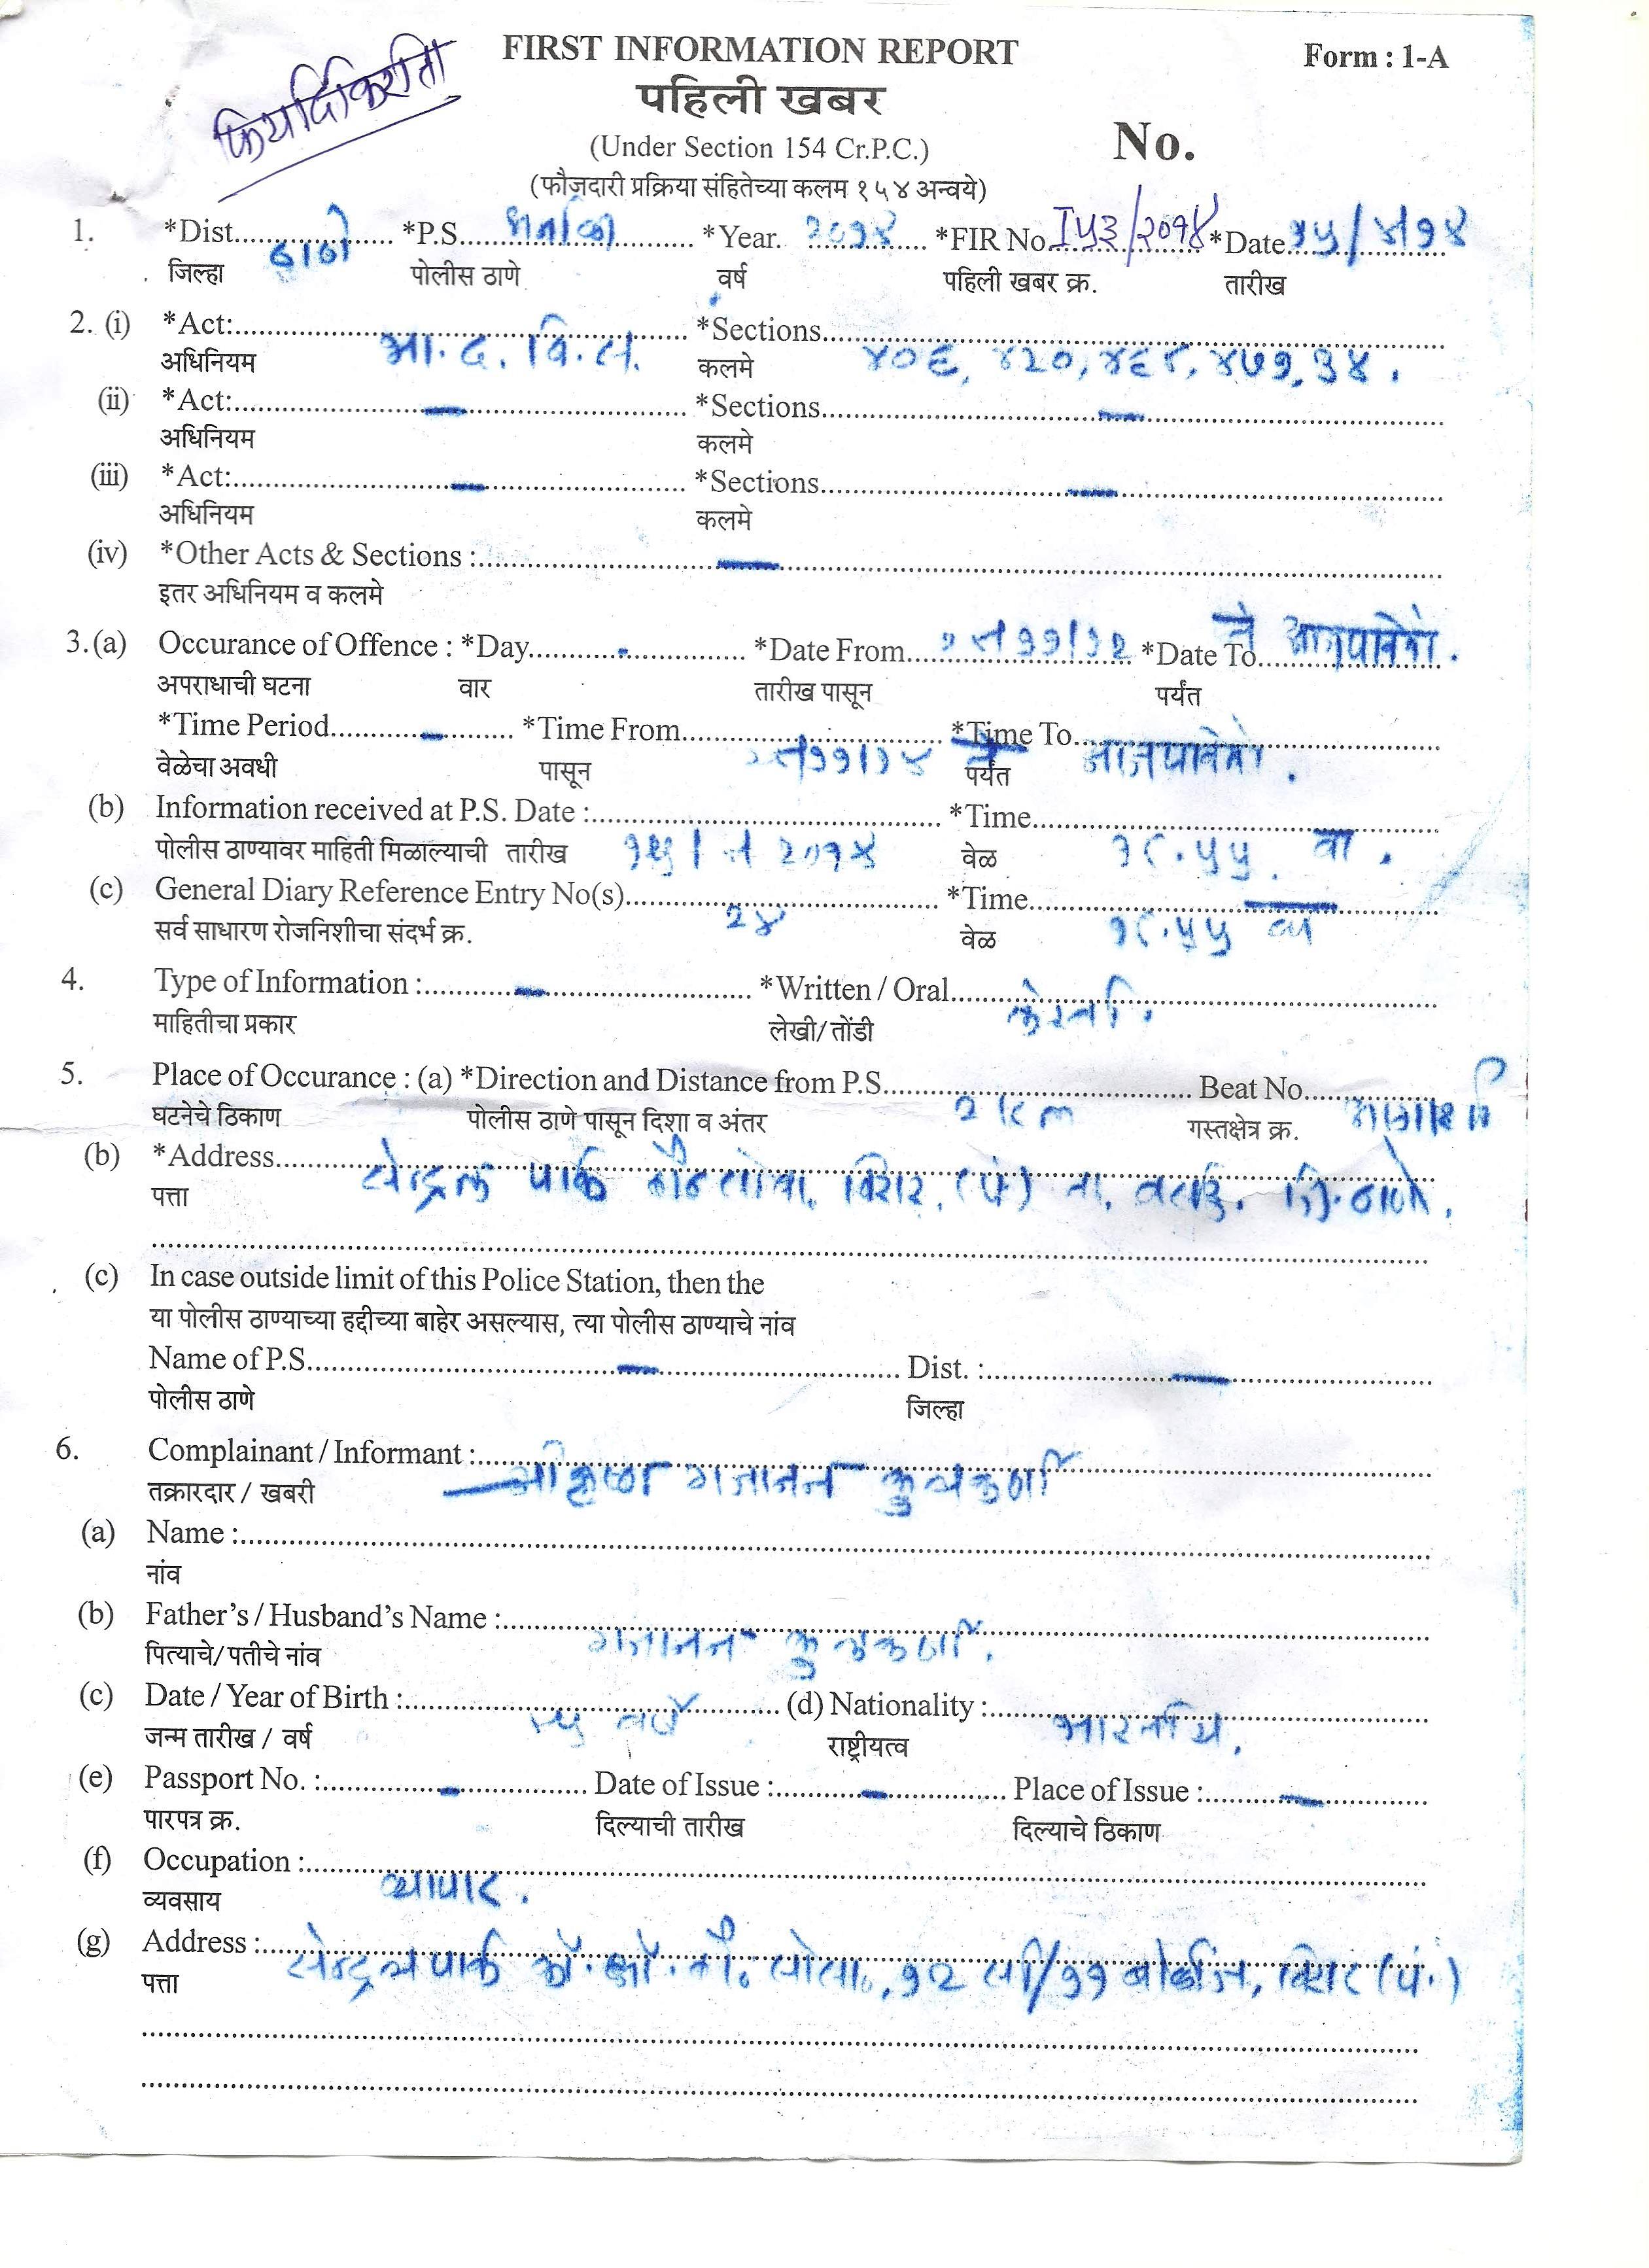 फिर्यादिकरीता
FIRST INFORMATION REPORT Form : 1-A
पहिली खबर
(Under Section 154 Cr.P.C.) No.
(फौजदारी प्रक्रिया संहितेच्या कलम १५४ अन्वये)
1. *Dist. ठाणे *P.S. अर्नाळा *Year. २०१४ *FIR No. I ५३/२०१४ *Date
जिल्हा पोलीस ठाणे वर्ष पहिली खबर क्र. तारीख
2. (i) *Act: भा. द. वि. स. *Sections ४०६, ४२०, ४६८, ४७१, ३४.
अधिनियम कलमे
(ii) *Act: — *Sections —
अधिनियम कलमे
(iii) *Act: — *Sections —
अधिनियम कलमे
(iv) *Other Acts & Sections : —
इतर अधिनियम व कलमे
3. (a) Occurance of Offence : *Day - *Date From *Date To ते आजपावेतो.
अपराधाची घटना वार तारीख पासून पर्यंत
*Time Period - *Time From *Time To आजपावेतो.
वेळेचा अवधी पासून पर्यंत
(b) Information received at P.S. Date : *Time
पोलीस ठाण्यावर माहिती मिळाल्याची तारीख वेळ १८.५५ वा.
(c) General Diary Reference Entry No(s). २४ *Time
सर्व साधारण रोजनिशीचा संदर्भ क्र. वेळ १८.५५ वा
4. Type of Information : — *Written / Oral
माहितीचा प्रकार लेखी/ तोंडी
5. Place of Occurance : (a) *Direction and Distance from P.S. २ km Beat No.
घटनेचे ठिकाण पोलीस ठाणे पासून दिशा व अंतर गस्तक्षेत्र क्र.
(b) *Address सेन्ट्रल पार्क विरार, (पं) ता. वसई. जि. ठाणे.
पत्ता
(c) In case outside limit of this Police Station, then the
या पोलीस ठाण्याच्या हद्दीच्या बाहेर असल्यास, त्या पोलीस ठाण्याचे नांव
Name of P.S. — Dist. : —
पोलीस ठाणे जिल्हा
6. Complainant / Informant : श्रीकृष्ण गजानन कुलकर्णी
तक्रारदार / खबरी
(a) Name :
नांव
(b) Father's / Husband's Name : गजानन कुलकर्णी.
पित्याचे/ पतीचे नांव
(c) Date / Year of Birth : वर्षे (d) Nationality : भारतीय.
जन्म तारीख / वर्ष राष्ट्रीयत्व
(e) Passport No. : - Date of Issue : - Place of Issue : —
पारपत्र क्र. दिल्याची तारीख दिल्याचे ठिकाण
(f) Occupation : व्यापार.
व्यवसाय
(g) Address : सेन्ट्रल पार्क को. ऑ. हौ. सोसा., १२ सी/११ बोळींज, विरार (पं.)
पत्ता